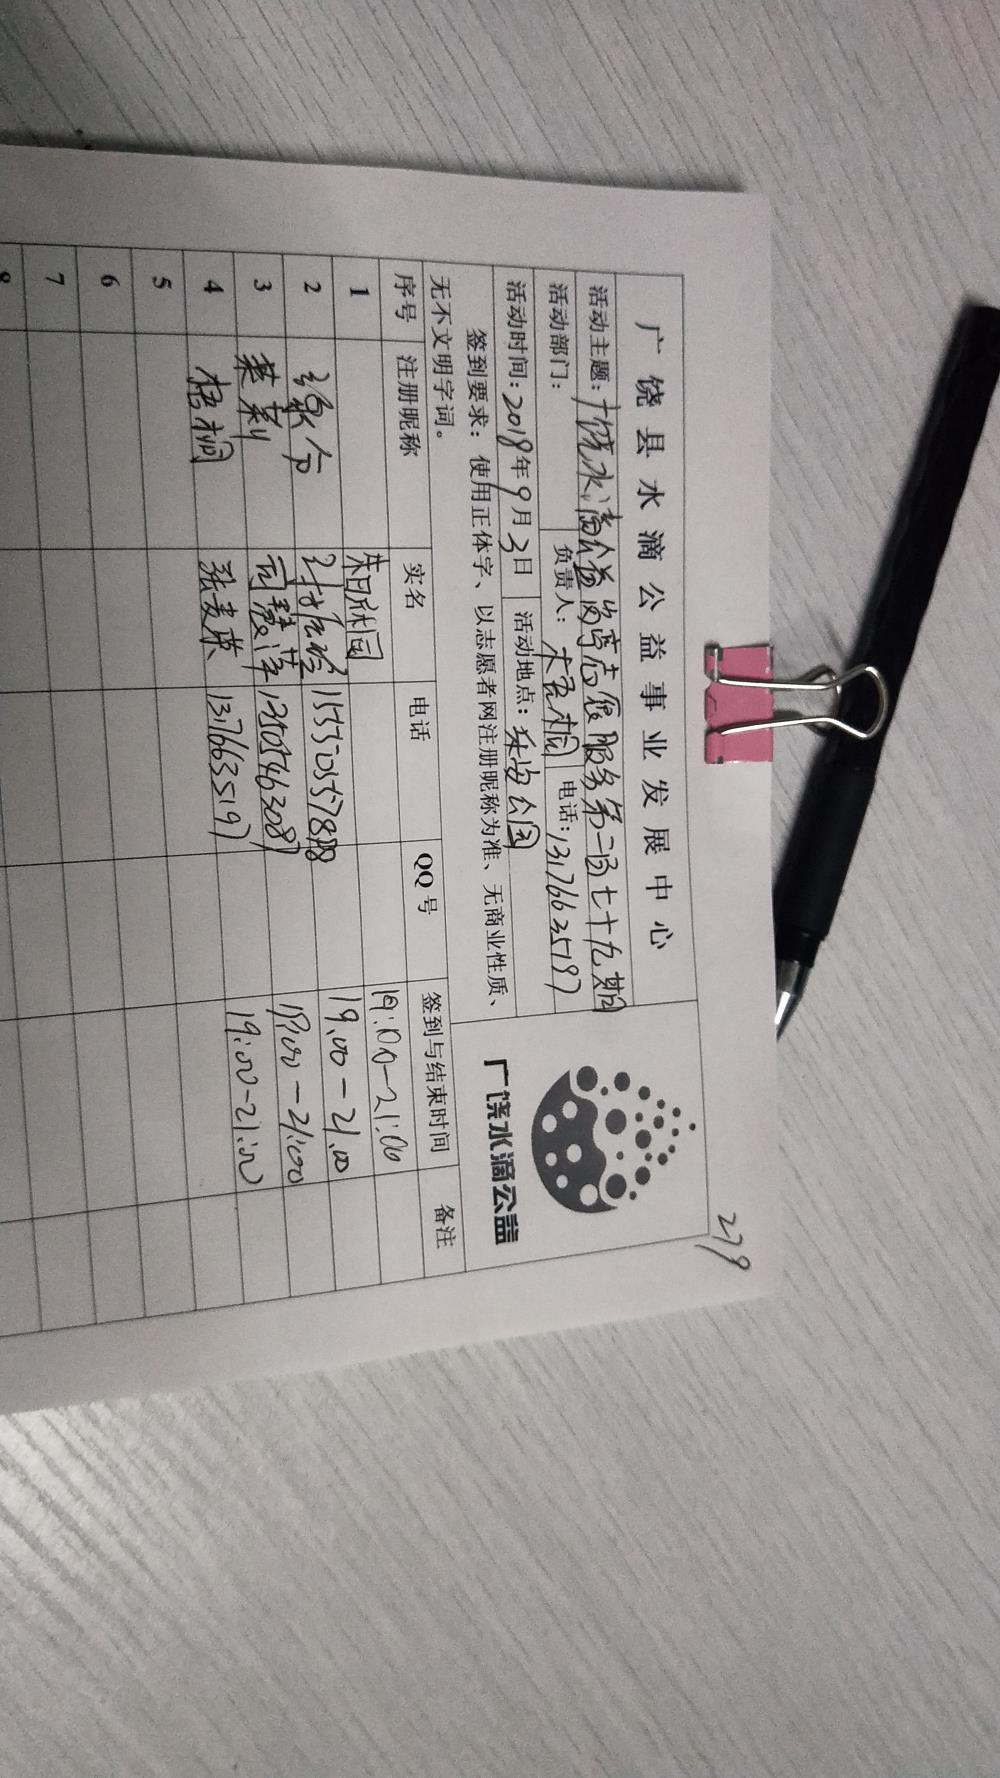 279
广饶县水滴公益事业发展中心
活动主题：广饶水滴公益 志愿服务第二百七十九期
活动部门： 负责人：梧桐 电话：13176635197
活动时间：2018年9月3日 活动地点：乐安公园
签到要求：使用正体字、以志愿者网注册昵称为准、无商业性质、
无不文明字词。
广饶水滴公益
序号 注册昵称 实名 电话 QQ号 签到与结束时间 备注
1 19:00-21:00
2 15550557888 19:00-21:00
3 茉莉 13505463087 19:00-21:00
4 梧桐 张麦荣 13176635197 19:00-21:00
5
6
7
8